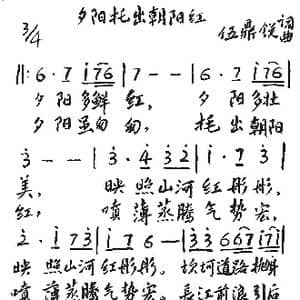 夕阳托出朝阳红
3/4
伍鼎锐 词曲
‖: 6 · 7 i 7 6 | 7 - - | 6 · 7 i 7 6 |
夕阳多鲜红, 夕阳多壮
夕阳虽匆匆, 托出朝阳
3 - - | 3 · 4 3 2 | i · 7 3 |
美, 映照山河红彤彤,
红; 喷薄蒸腾气势宏,
2 · i 7 3 | i 7 6 - | 3 3 6 6 7 i 7 i |
映照山河红彤彤。坎坷道路
喷薄蒸腾气势宏。长江前浪引后